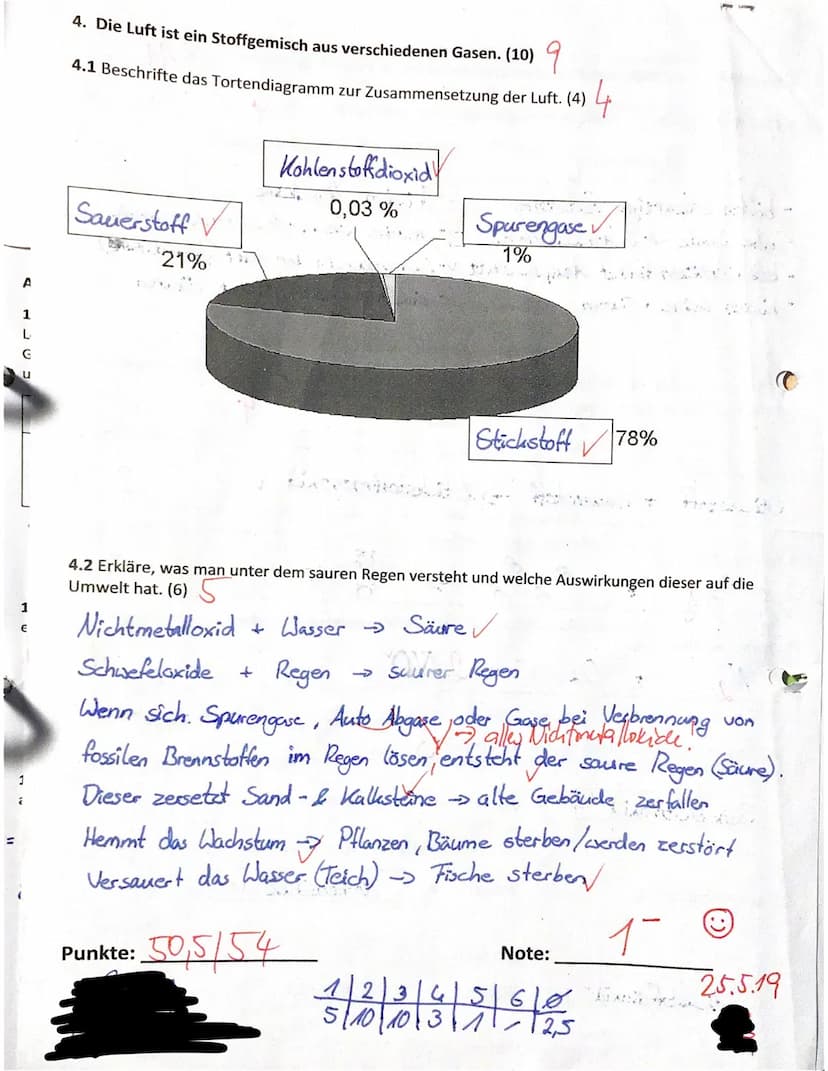 4. Die Luft ist ein Stoffgemisch aus verschiedenen Gasen. (10) 9
4.1 Beschrifte das Tortendiagramm zur Zusammensetzung der Luft. (4) 4
Kohlenstoffdioxid
0,03 %
Sauerstoff
21%
Spurengase
1%
Stickstoff
78%
4.2 Erkläre, was man unter dem sauren Regen versteht und welche Auswirkungen dieser auf die
Umwelt hat. (6) 5
Nichtmetalloxid + Wasser → Säure
Schwefeloxide + Regen → saurer Regen
Wenn sich Spurengase, Auto Abgase, oder Gase, bei Verbrennung von
→ alles Nichtmetalloxide!
fossilen Brennstoffen im Regen lösen, entsteht der saure Regen (Säure).
Dieser zersetzt Sand- & Kalksteine → alte Gebäude zerfallen
Hemmt das Wachstum → Pflanzen, Bäume sterben/werden zerstört
Versauert das Wasser (Teich) → Fische sterben
Punkte: 50,5/54
Note: 1-
25.5.19
1 | 2 | 3 | 4 | 5 | 6 | Ø
5 | 10 | 10 | 3 | 1 | - | 2,5
A
1
L
G
u
1
€
1
=